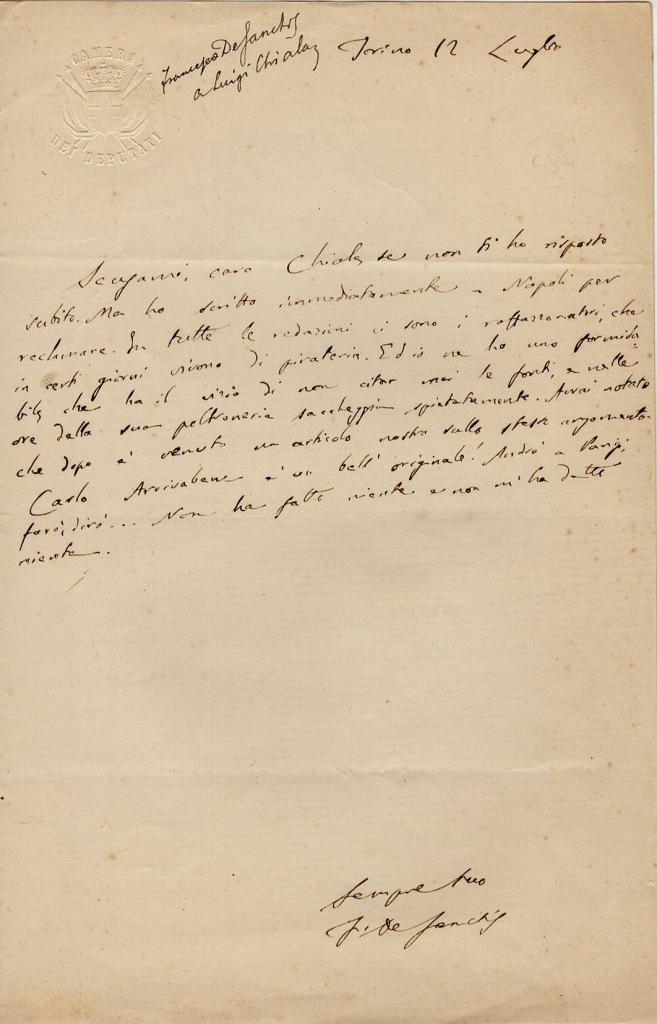 CAMERA
DEI DEPUTATI
Francesco De Sanctis
a Luigi Chiala
Torino 12 Luglio
Scusami, caro Chiala, se non ti ho risposto
subito. Ma ho scritto immediatamente a Napoli per
reclamare. In tutte le redazioni ci sono i raffazzonatori, che
in certi giorni vivono di pirateria. Ed io ne ho uno formida-
bile che ha il vizio di non citar mai le fonti, e nelle
ore della sua poltroneria saccheggia spietatamente. Avrai notato
che dopo è venuto un articolo nostro sullo stesso argomento.
Carlo Arrivabene è un bell'originale! Andrò a Parigi,
farò, dirò... Non ha fatto niente e non m'ha detto
niente.
Sempre tuo
F. De Sanctis